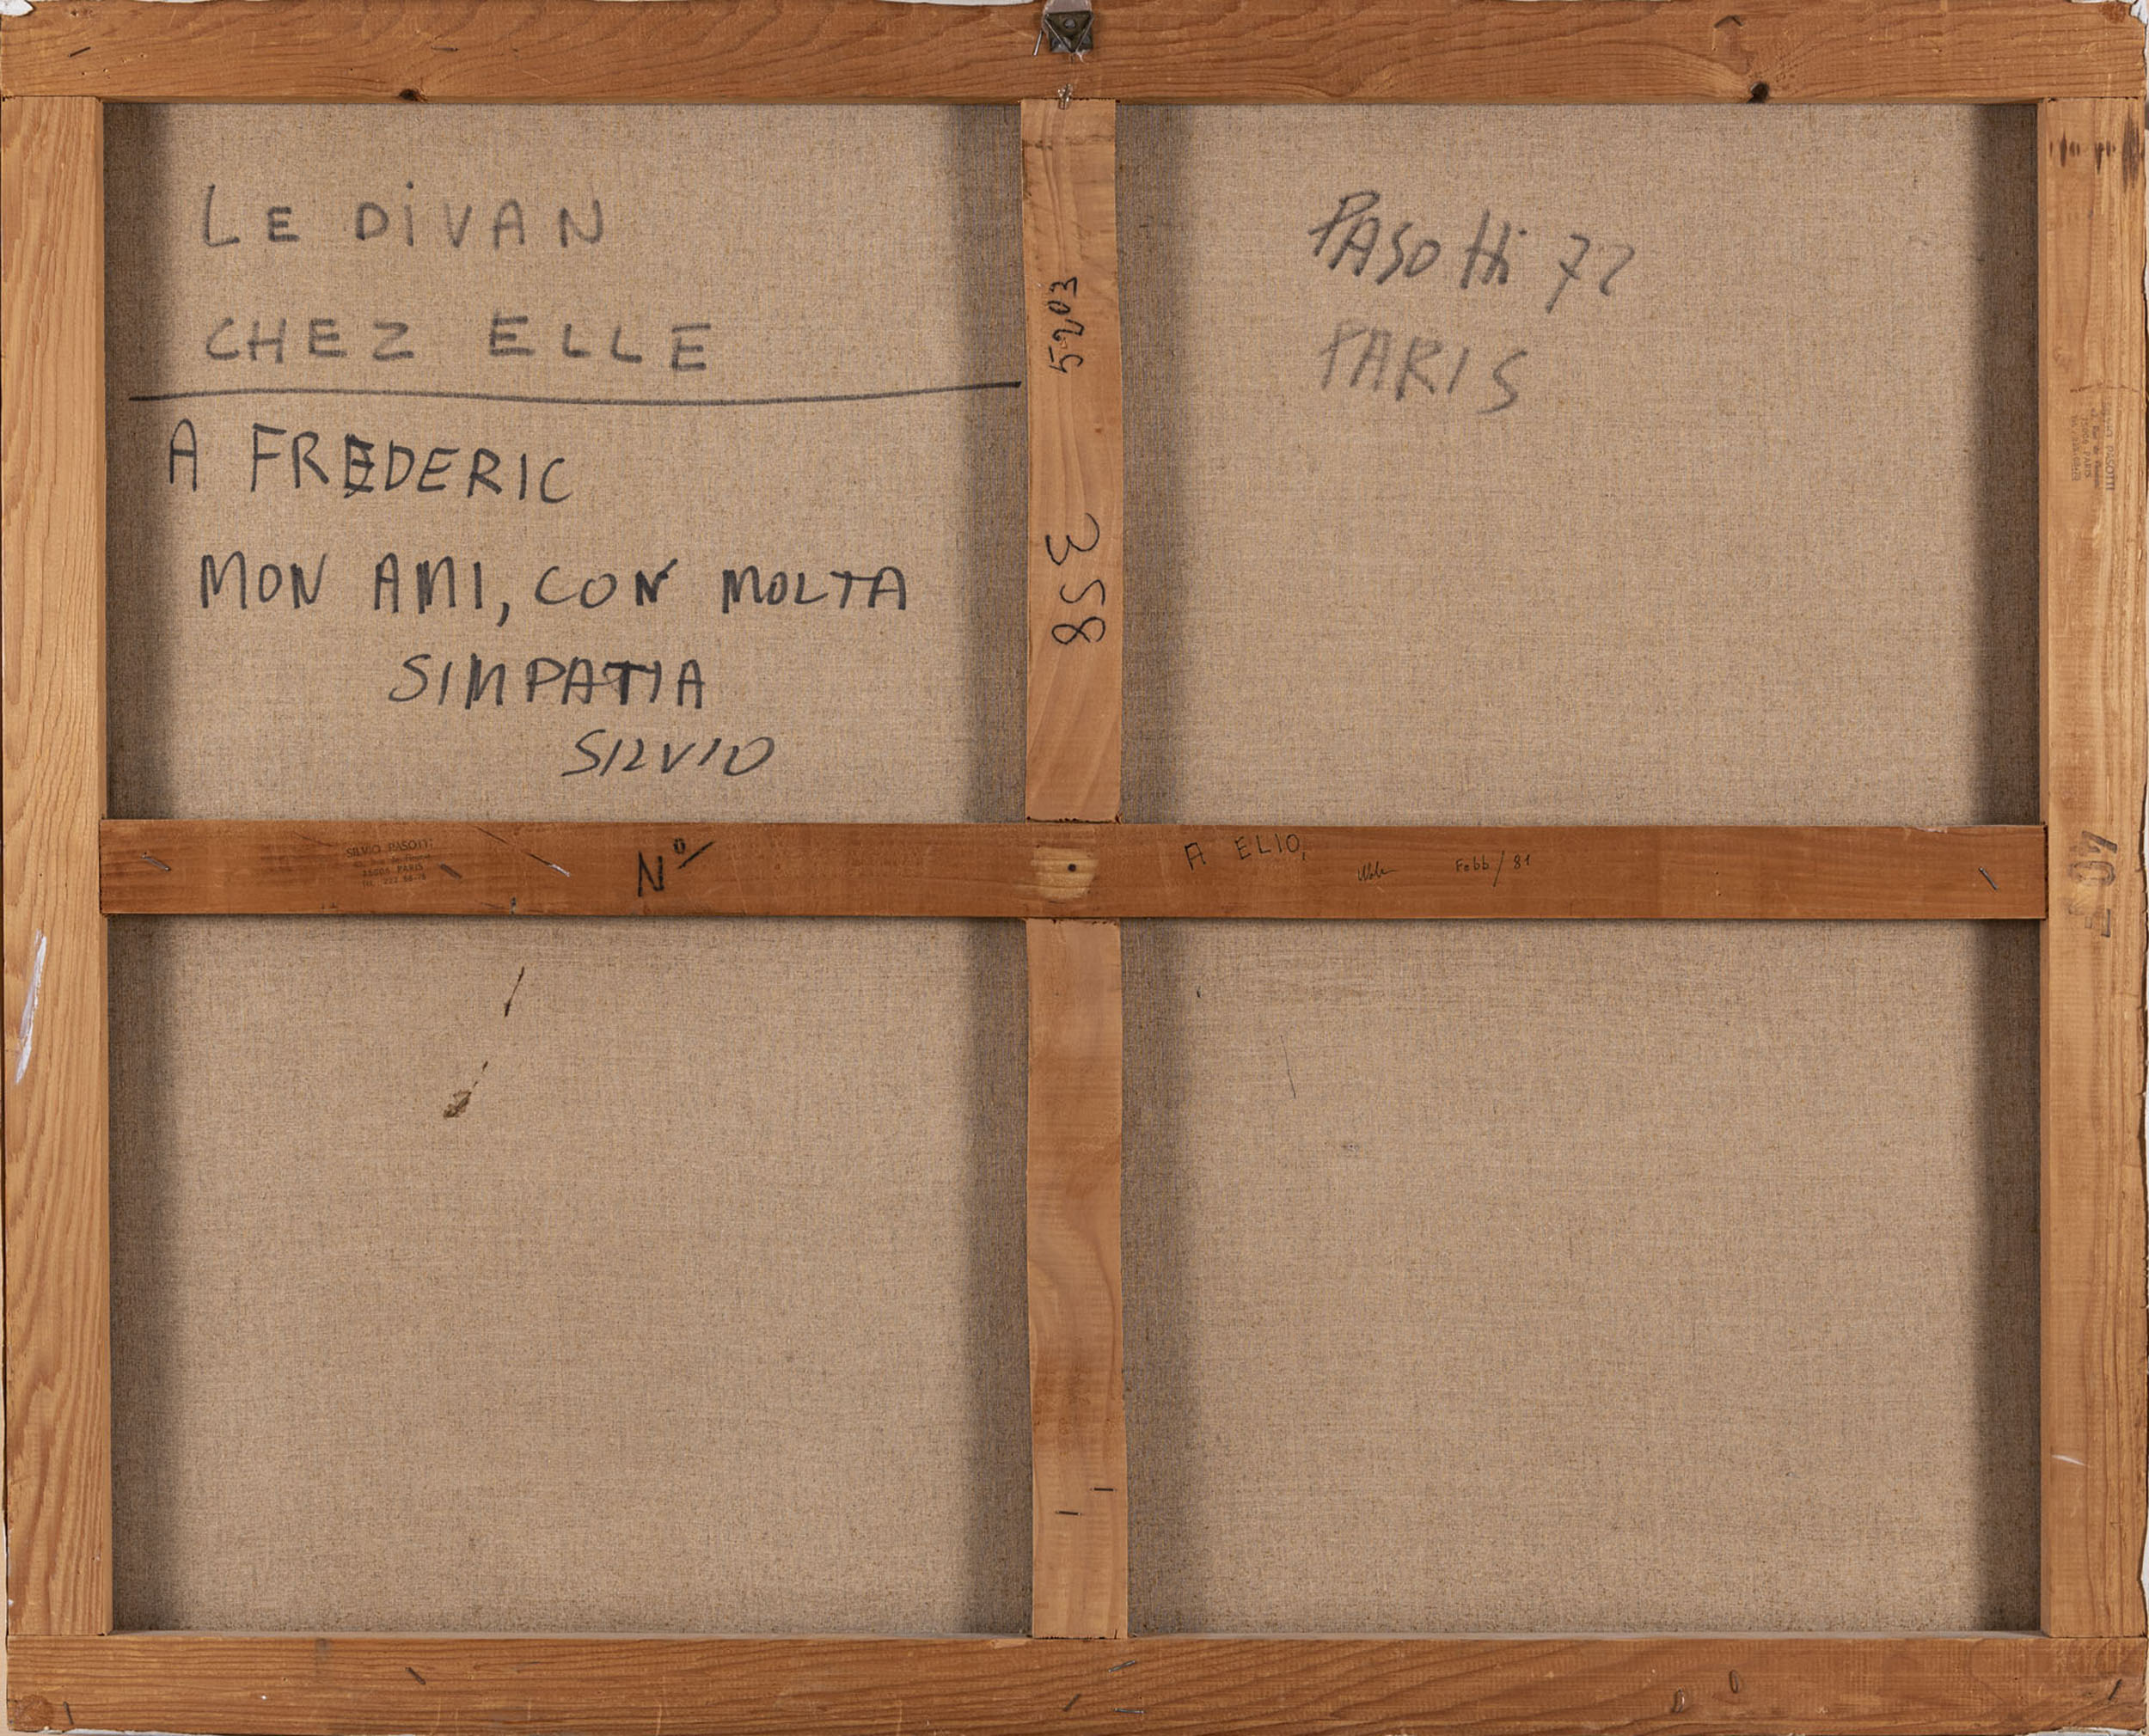 LE DIVAN
CHEZ ELLE
A FREDERIC
MON AMI, CON MOLTA
SIMPATIA
SILVIO
PASOTTI 72
PARIS
5203
358
SILVIO PASOTTI
75006 PARIS
Nº
A ELIO,
Febb/81
40 F
PASOTTI
PARIS